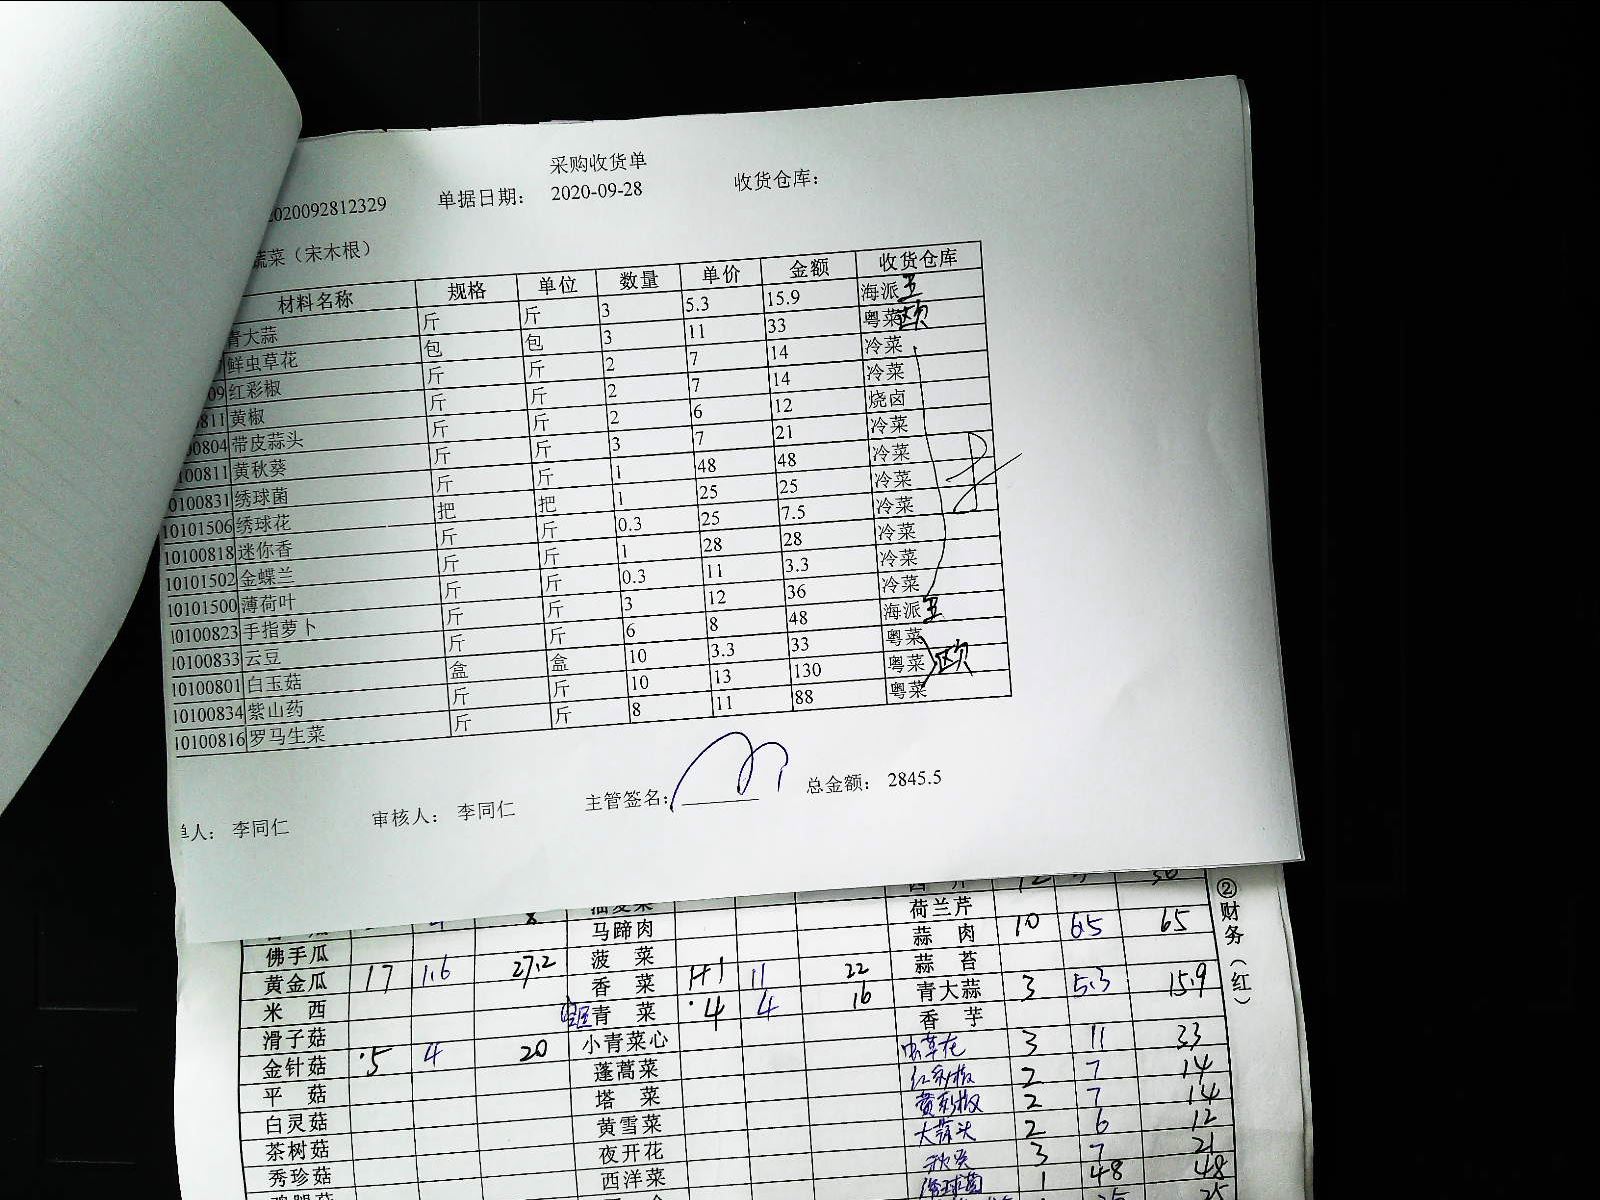 采购收货单
2020092812329 单据日期: 2020-09-28 收货仓库:
蔬菜(宋木根)
材料名称 规格 单位 数量 单价 金额 收货仓库
青大蒜 斤 斤 3 5.3 15.9 海派 王
鲜虫草花 包 包 3 11 33 粤菜 欧
09 红彩椒 斤 斤 2 7 14 冷菜
0811 黄椒 斤 斤 2 7 14 冷菜
00804 带皮蒜头 斤 斤 2 6 12 烧卤
100811 黄秋葵 斤 斤 3 7 21 冷菜
0100831 绣球菌 斤 斤 1 48 48 冷菜
10101506 绣球花 把 把 1 25 25 冷菜
10100818 迷你香 斤 斤 0.3 25 7.5 冷菜
10101502 金蝶兰 斤 斤 1 28 28 冷菜
10101500 薄荷叶 斤 斤 0.3 11 3.3 冷菜
10100823 手指萝卜 斤 斤 3 12 36 冷菜
10100833 云豆 斤 斤 6 8 48 海派 王
10100801 白玉菇 盒 盒 10 3.3 33 粤菜
10100834 紫山药 斤 斤 10 13 130 粤菜 欧
10100816 罗马生菜 斤 斤 8 11 88 粤菜
单人: 李同仁 审核人: 李同仁 主管签名: 总金额: 2845.5
荷兰芹
佛手瓜 马蹄肉 蒜肉 10 6.5 65
黄金瓜 17 1.6 27.2 菠菜 蒜苔
米西 香菜 1+1 11 22 青大蒜 3 5.3 15.9
滑子菇 青菜 4 4 16 香芋
金针菇 5 4 20 小青菜心 虫草花 3 11 33
平菇 蓬蒿菜 红彩椒 2 7 14
白灵菇 塔菜 黄彩椒 2 7 14
茶树菇 黄雪菜 大蒜头 2 6 12
秀珍菇 夜开花 秋葵 3 7 21
西洋菜 绣球菌 1 48 48
25 25
②财务(红)